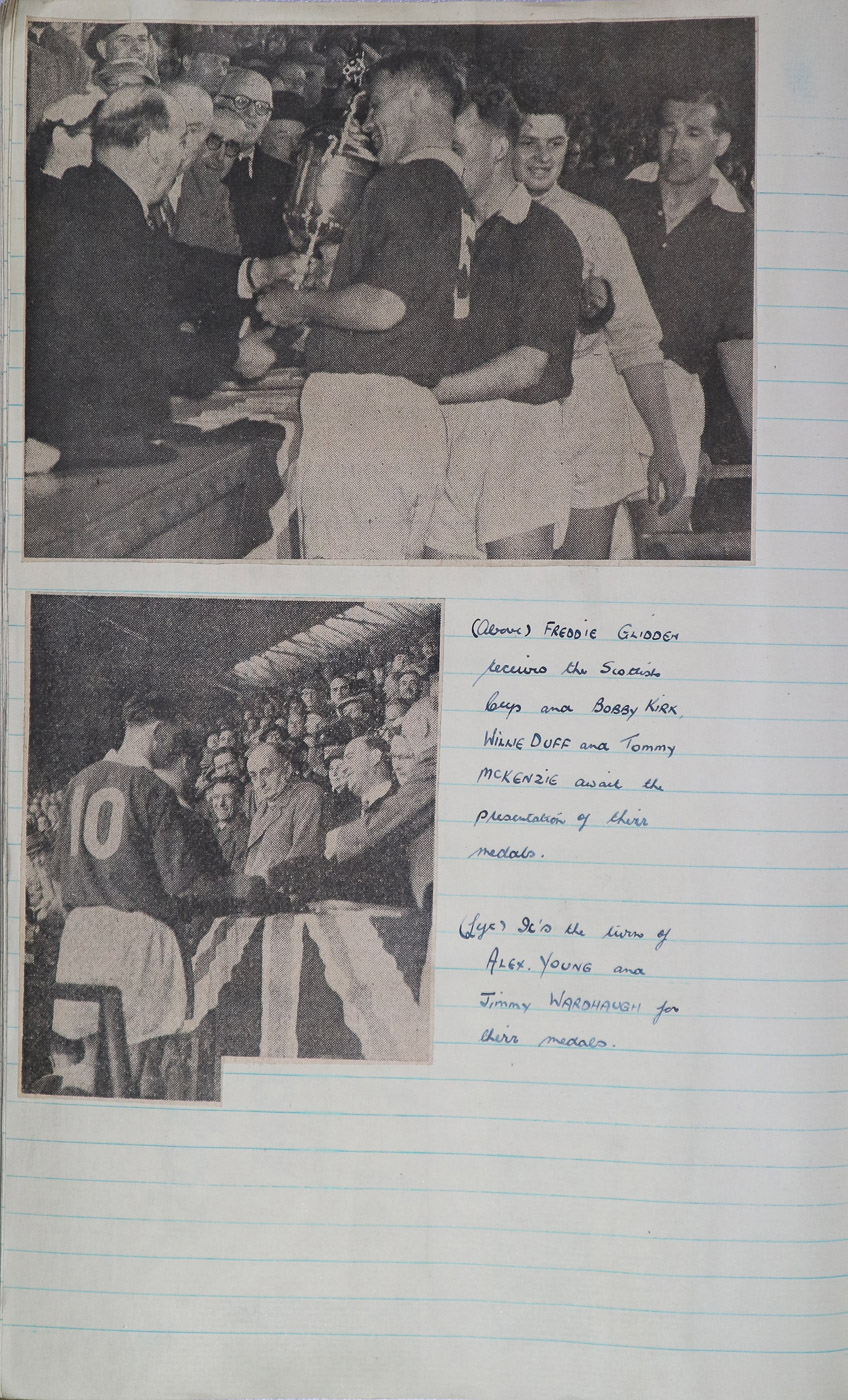 10
(Above) FREDDIE GLIDDEN
receives the Scottish
Cup and BOBBY KIRK,
WILLIE DUFF and Tommy
MCKENZIE await the
presentation of their
medals.
(Left) It's the turn of
ALEX. YOUNG and
Jimmy WARDHAUGH for
their medals.